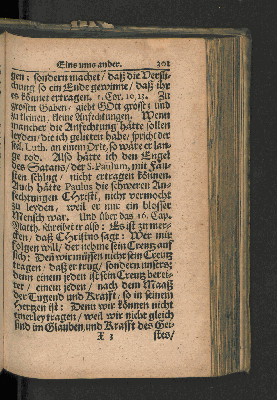 Eins ums ander. 301
gen: sondern machet / daß die Versu-
chung so ein Ende gewinne / daß ihr
es könnet ertragen. 1. Cor. 10, 13. Zu
grossen Gaben / giebt GOtt grosse: und
zu kleinen / kleine Anfechtungen. Wenn
mancher die Anfechtung hätte sollen
leyden / die ich gelitten habe / spricht der
sel. Luth. an einem Orte, so wäre er lan-
ge tod. Also hätte ich den Engel
des Satans / der S. Paulum, mit Fäu-
sten schlug / nicht ertragen können.
Auch hätte Paulus die schweren An-
fechtungen Christi, nicht vermocht
zu leyden, weil er nur ein blosser
Mensch war. Und über das 16. Cap.
Matth. schreibet er also: Es ist zu mer-
cken / daß Christus sagt: Wer mir
folgen will / der nehme sein Creutz auf
sich: Den wir müssen nicht sein Creutz
tragen / daß er trug / sondern unsers;
denn einem jeden ist sein Creutz berei-
tet / einem jeden / nach dem Maaß
der Tugend und Krafft / so in seinem
Hertzen ist: Denn wir können nicht
einerley tragen / weil wir nicht gleich
sind im Glauben und Krafft des Gei-
X 3 stes /